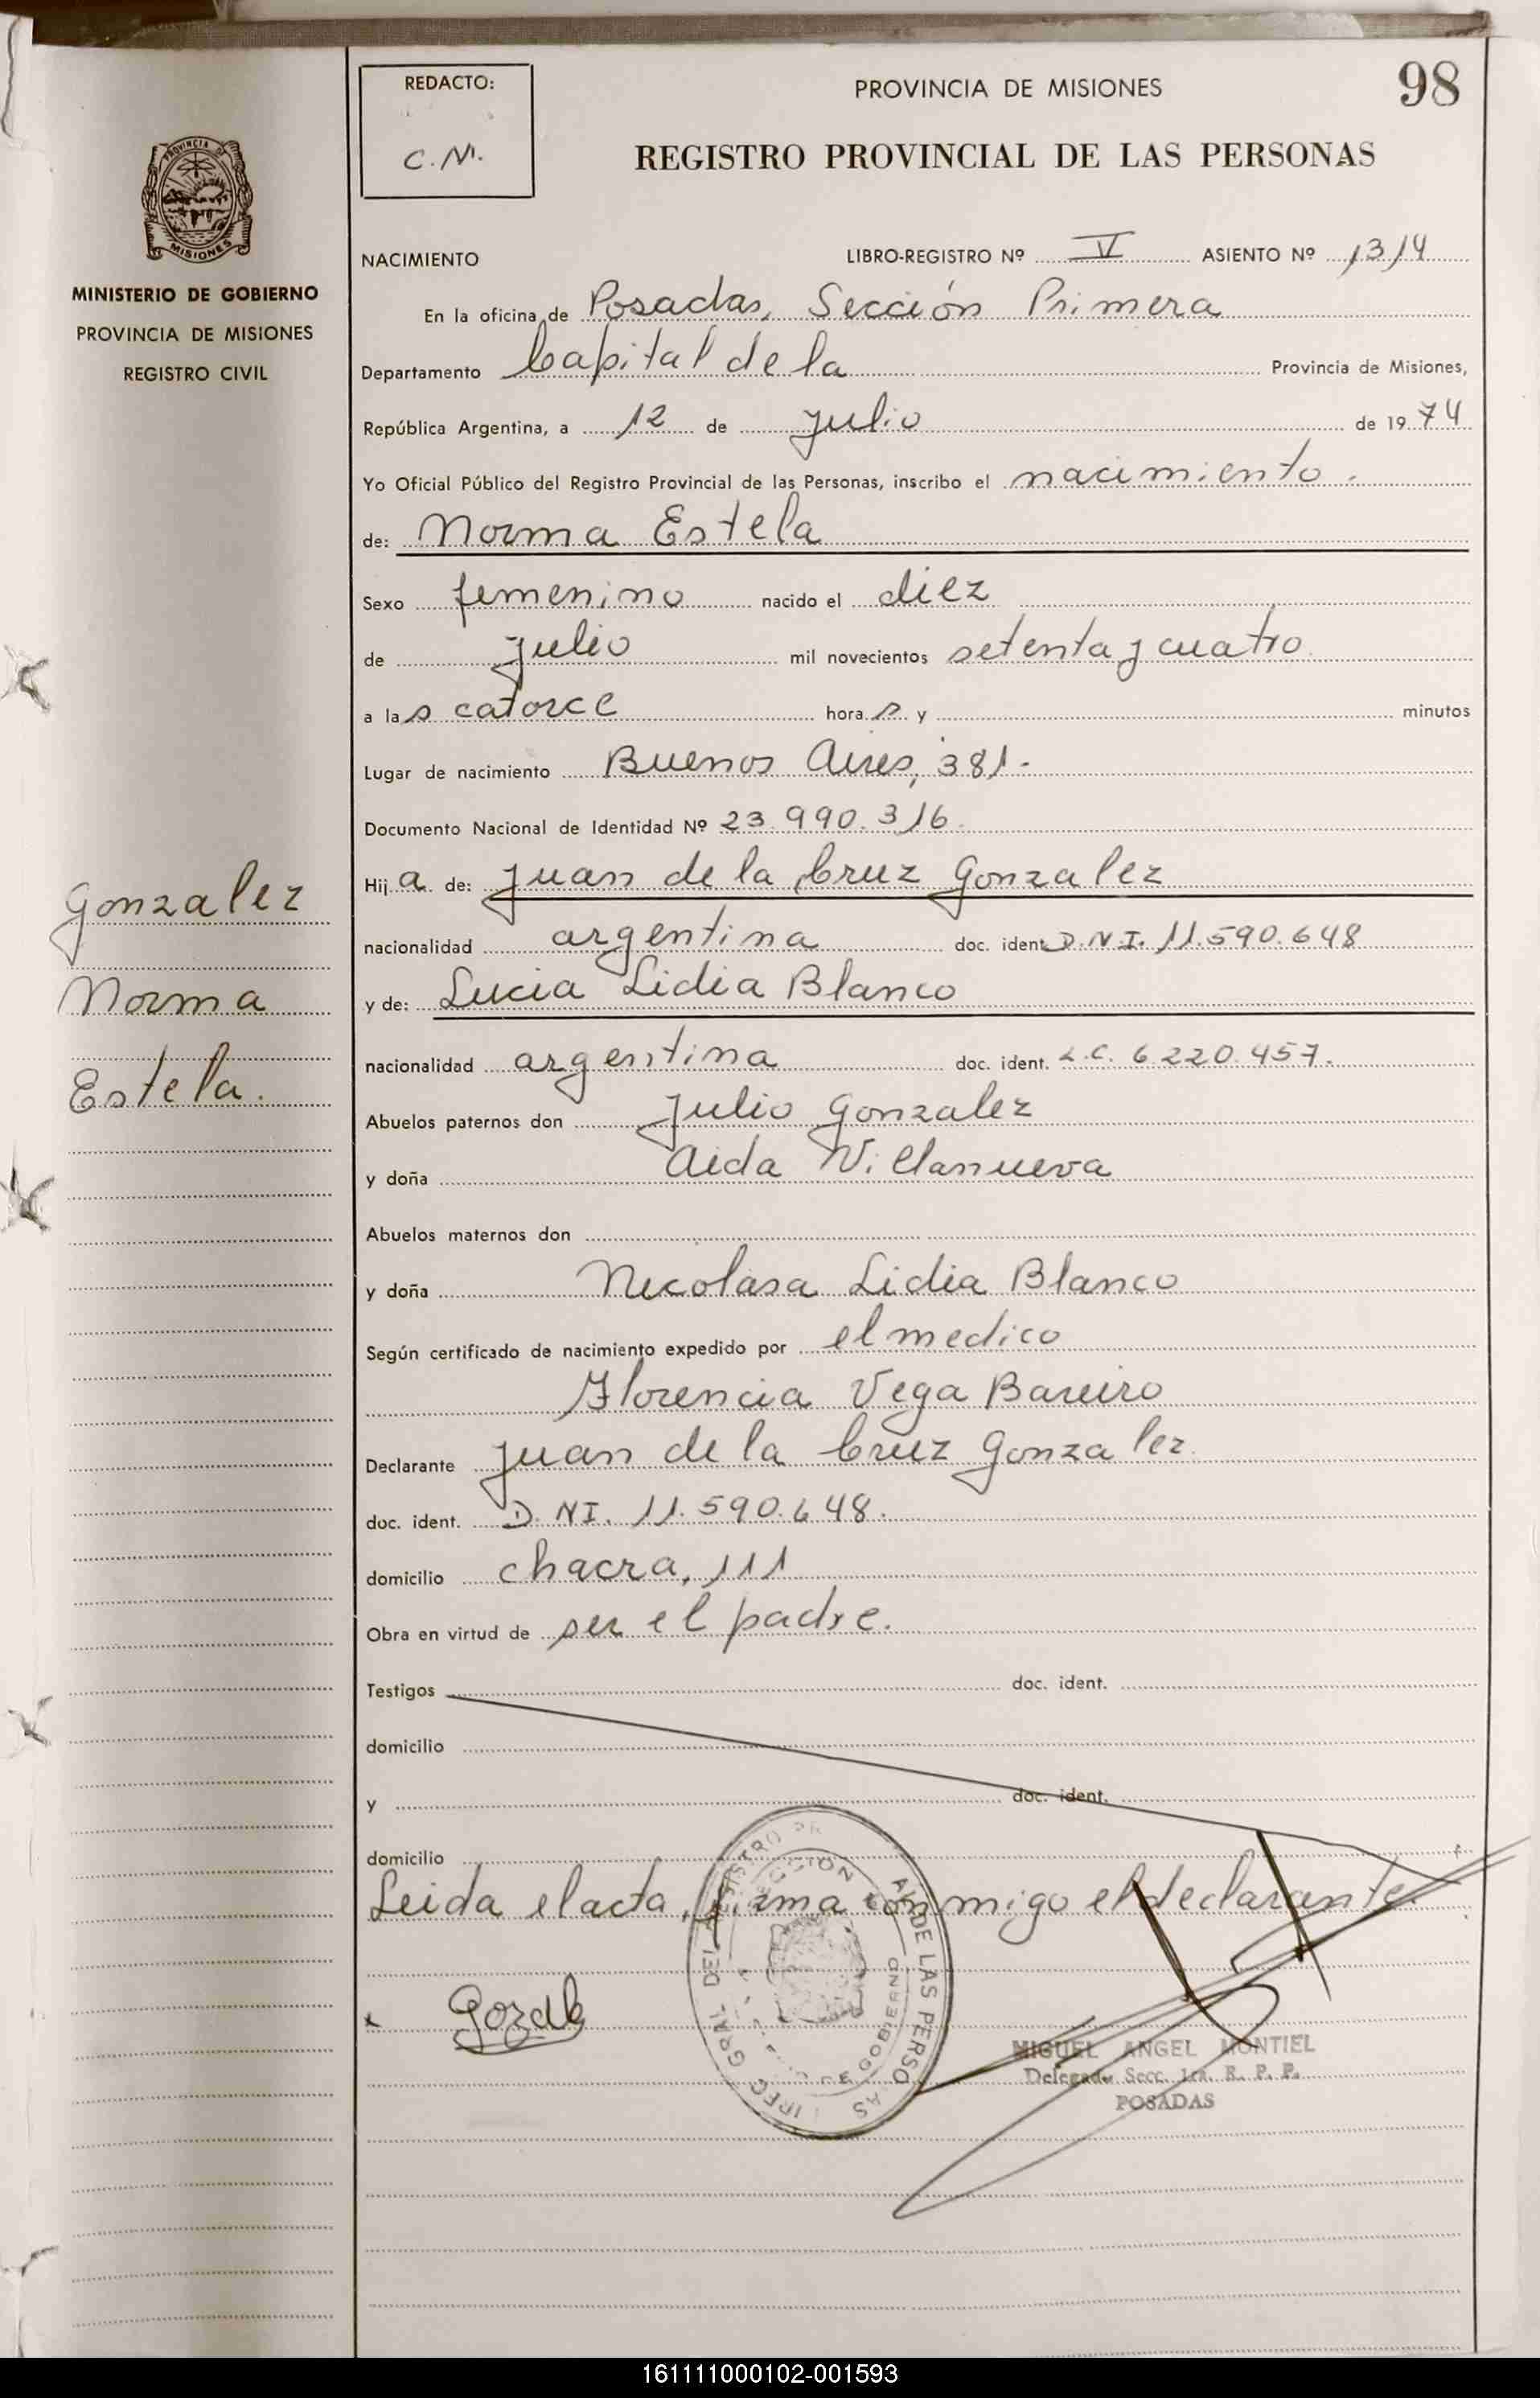 98
REDACTO:
C.M.
PROVINCIA DE MISIONES
REGISTRO PROVINCIAL DE LAS PERSONAS
PROVINCIA DE
MISIONES
MINISTERIO DE GOBIERNO
PROVINCIA DE MISIONES
REGISTRO CIVIL
NACIMIENTO LIBRO-REGISTRO Nº V ASIENTO Nº 1314
En la oficina de Posadas, Sección Primera
Departamento Capital de la Provincia de Misiones,
República Argentina, a 12 de Julio de 1974
Yo Oficial Público del Registro Provincial de las Personas, inscribo el nacimiento.
de: Norma Estela
Sexo femenino nacido el diez
de Julio mil novecientos setenta y cuatro
a las catorce horas y minutos
Lugar de nacimiento Buenos Aires, 381.
Documento Nacional de Identidad Nº 23.990.316
Hija de: Juan de la Cruz Gonzalez
nacionalidad argentina doc. ident. D.N.I. 11.590.648
y de: Lucia Lidia Blanco
nacionalidad argentina doc. ident. L.C. 6.220.457.
Abuelos paternos don Julio Gonzalez
y doña Aida Villanueva
Abuelos maternos don
y doña Nicolasa Lidia Blanco
Según certificado de nacimiento expedido por el medico
Florencia Vega Bareiro
Declarante Juan de la Cruz Gonzalez.
doc. ident. D.NI. 11.590.648.
domicilio chacra, 111
Obra en virtud de ser el padre.
Testigos doc. ident.
domicilio
y doc. ident.
domicilio
Leida el acta, firma conmigo el declarante.
Gonzalez
Norma
Estela.
MIGUEL ANGEL MONTIEL
Delegado Secc. 1ra. R. P. P.
POSADAS
161111000102-001593